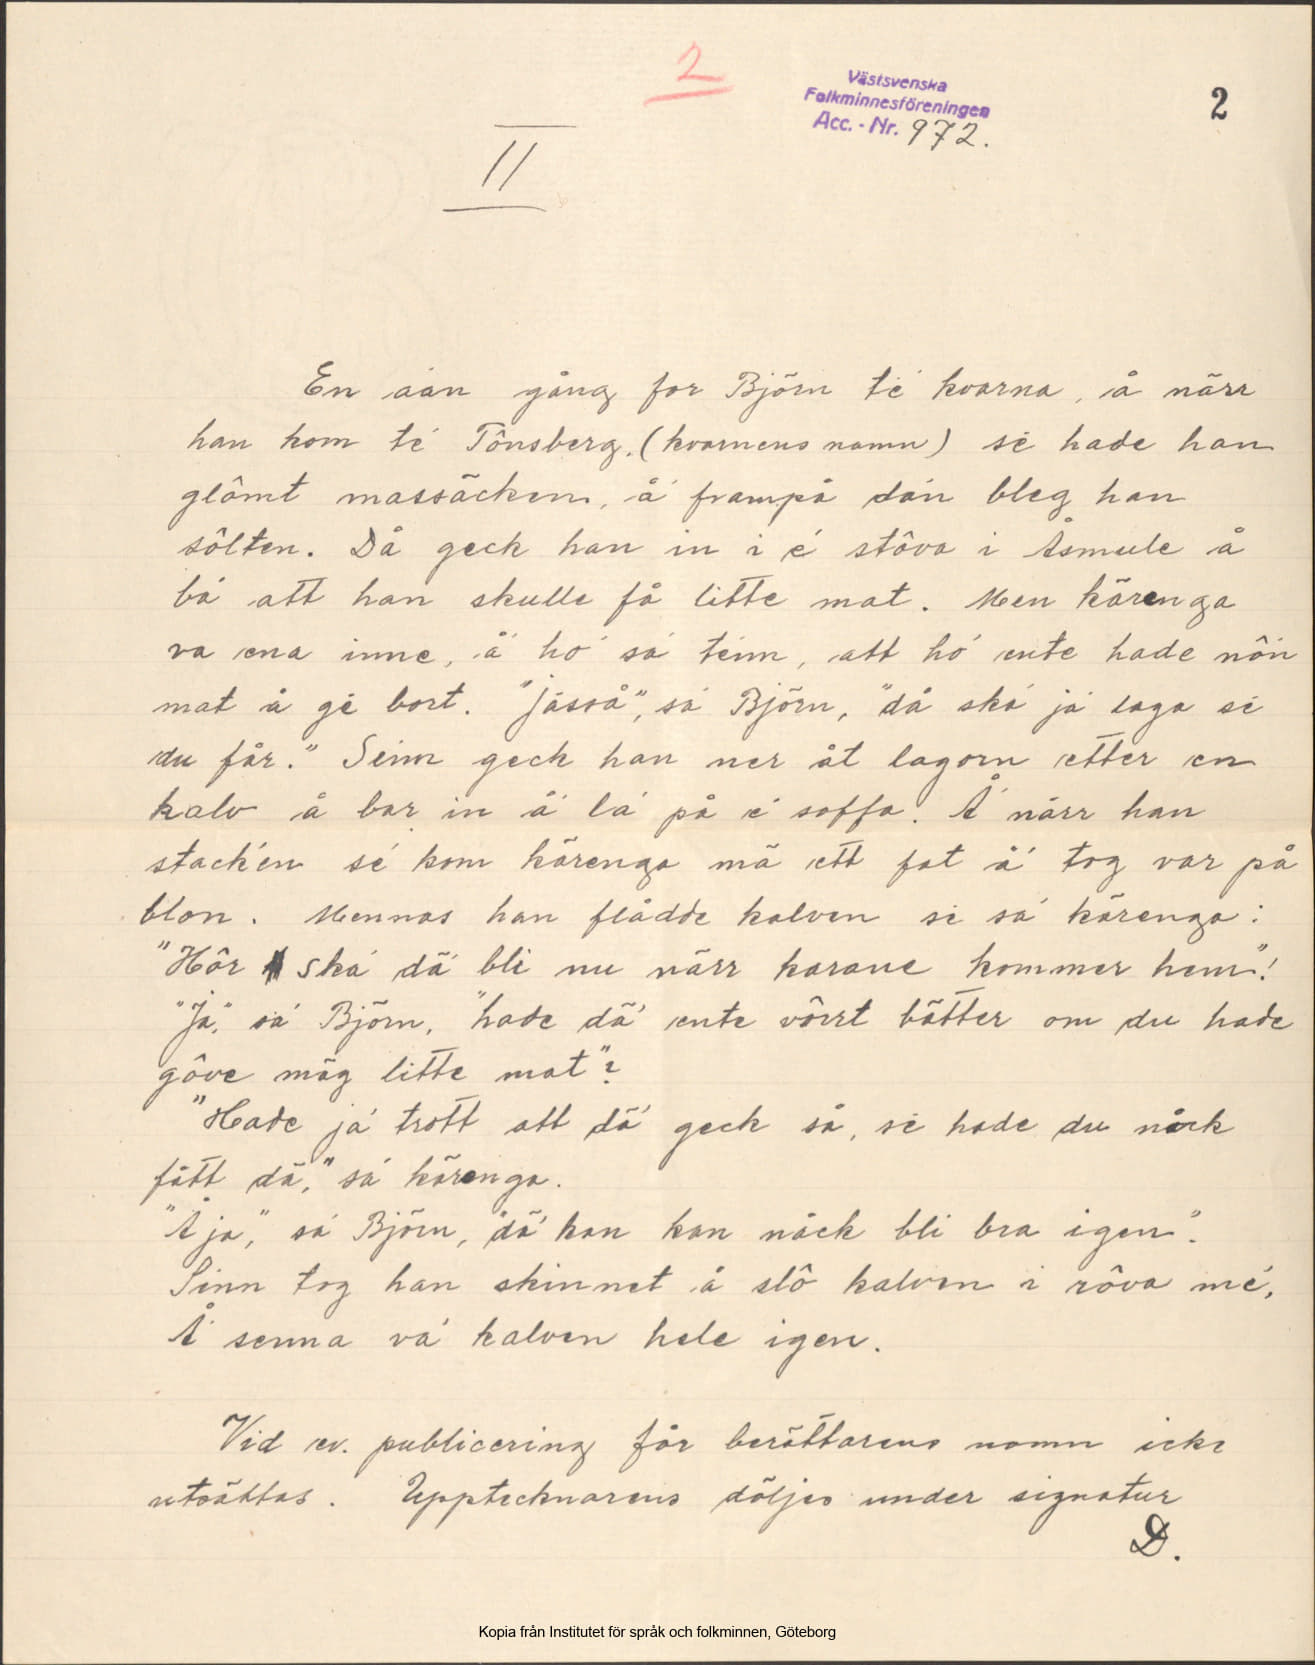 2
Västsvenska
Folkminnesföreningen
Acc. - Nr. 972.
2
II
En áan gång for Björn té kvarna, å närr
han kom té Tônsberg. (kvarnens namn) sé hade han
glômt massäcken, å frampå dán bleg han
sôlten. Då geck han in i é stôva i Åsmule å
bá att han skulle få litte mat. Men kärenga
va ena inne, å hó sá téinn, att hó ente hade nôn
mat å gé bort. "Jásså", sá Björn, "då ská já laga sé
du får." Seinn geck han ner åt lagorn etter en
kalv å bar in å lá på é soffa. Å närr han
stack'en sé kom kärenga mä ett fat å tog var på
blon. Mennas han flådde kalven sé sá kärenga:
"Hôr ská dä bli nu närr karane kommer hem"!
"Já", sá Björn, "hade dä ente vôrrt bätter om du hade
gôve mäg litte mat"?
"Hade já trott att dä geck så, sé hade du nåck
fått dä," sá kärenga.
"Å ja," sá Björn, "dä kan kan nåck bli bra igen".
Sinn tog han skinnet å slô kalven i rôva mé,
Å senna vá kalven hele igen.
Vid ev. publicering får berättarens namn icke
utsättas. Upptecknarens döljes under signatur
D.
Kopia från Institutet för språk och folkminnen, Göteborg